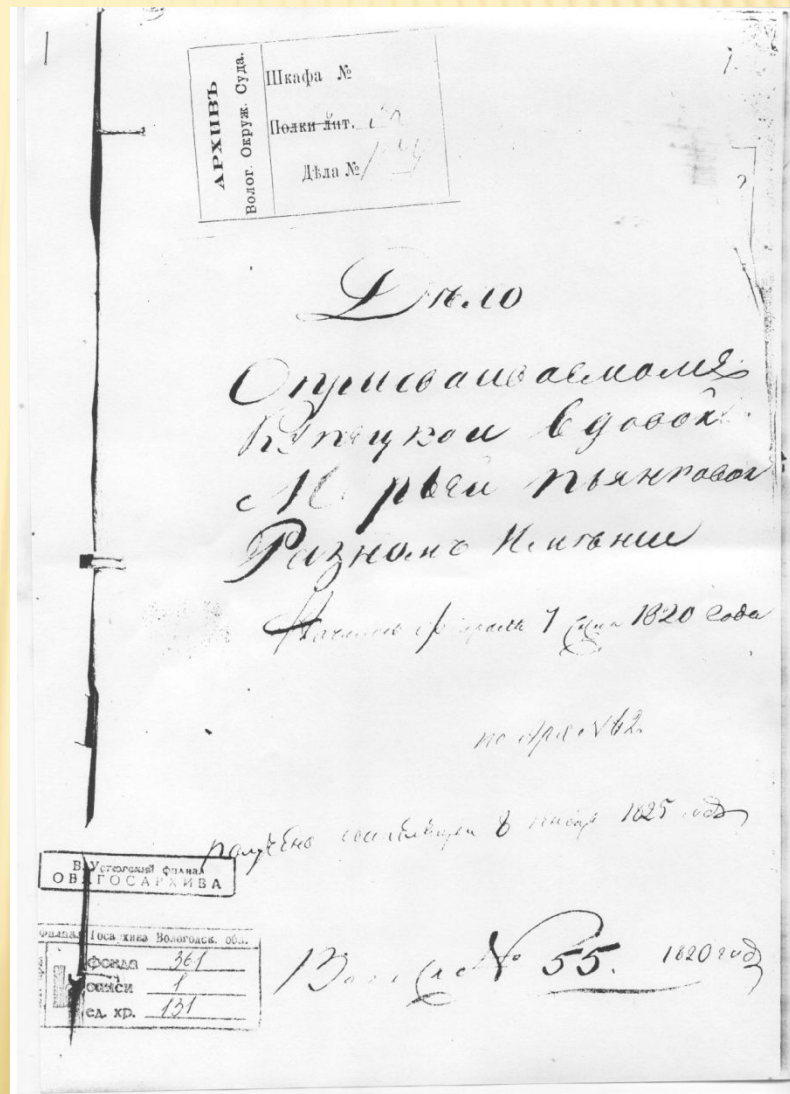 АРХИВЪ
Волог. Окруж. Суда.
Шкафа №
Полки лит.
Дѣла №
Дѣло
О присваиваемомъ
Купецкой вдовой
Марьей Пьянковой
Разномъ Имѣнии
Началось февраля 7 дня 1820 Года
по Арх. № 62
получено 8 1825
В. Устюгский филиал
ОБЛГОСАРХИВА
Филиал Госархива Вологодск. обл.
фонда 361
описи 1
ед. хр. 131
№ 55. 1820 год